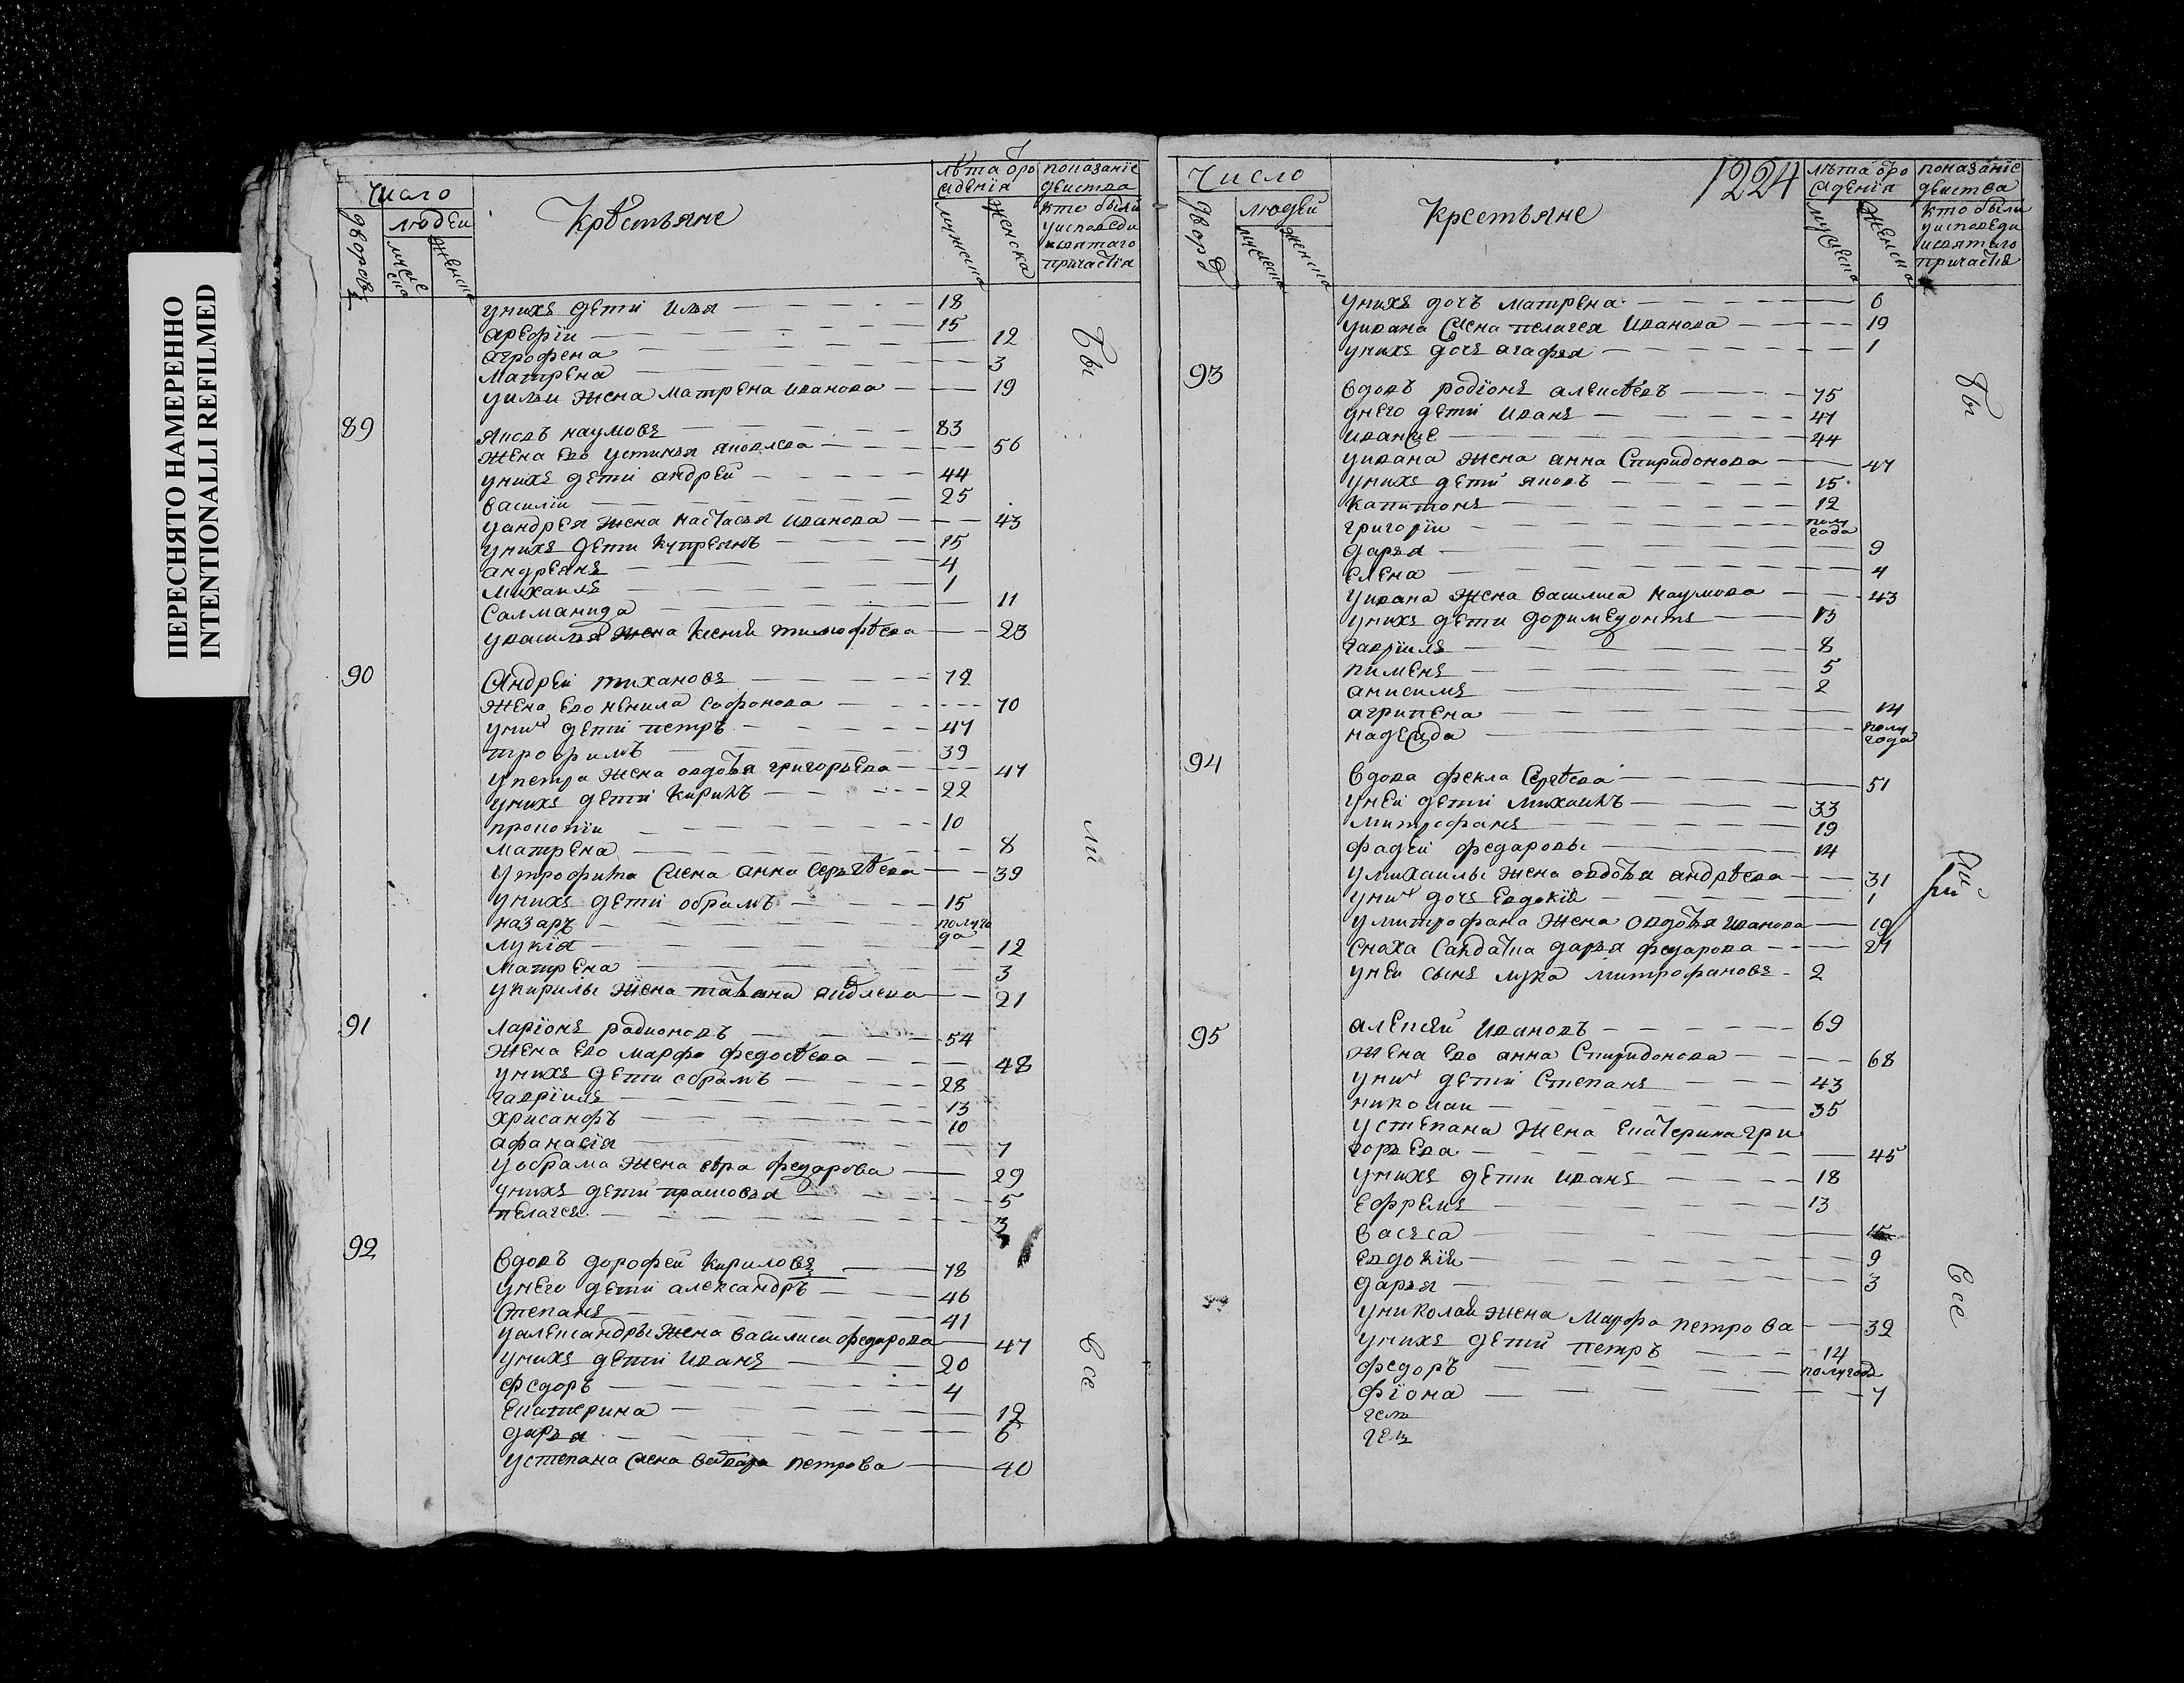 ПЕРЕСНЯТО НАМЕРЕННО
INTENTIONALLI REFILMED
Число
дворовъ
людеи
мужеска
женска
Крѣстьяне
лѣта ѿро
жденїя
мужеска
женска
показанїе
деиства
кто были
уисповеди
исвятаго
причастїя
унихъ дети илья 18
арефїи 15
агрофена 12
матрена 3
уильи жена матрена иванова 19
89 яковъ наумовъ 83
жена ево устинья яковлева 56
унихъ дети андреи 44
василїи 25
уандрея жена настасья иванова 43
унихъ дети купреянъ 15
андреянъ 4
михаилъ 1
саламанида 11
увасилья жена ксения тимофѣева 23
90 Андреи тихановъ 72
жена ево ненила софонова 70
уних дети петръ 47
трофимъ 39
упетра жена овдотья григорьева 47
унихъ дети кирилъ 22
прокопїи 10
матрена 8
утрофима жена анна сергѣева 39
унихъ дети обрамъ 15
назаръ полуго
да
лукїя 12
матрена 3
укирилы жена татьяна яковлева 21
91 ларїонъ радионовъ 54
жена ево марфа федосѣева 48
унихъ дети обрамъ 28
гаврїилъ 13
хрисанфъ 10
афанасїя 7
уобрама жена федарова 29
унихъ дети прасковья 5
пелагея 3
92 вдовъ дорофеи кириловъ 78
унего дети александръ 46
степанъ 41
уалександры жена василиса федарова 47
унихъ дети иванъ 20
федоръ 4
екатерина 12
дарья 6
устепана жена петрова 40
бы
ли
все
1224
Число
дворовъ
людей
мужеска
женска
Крестьяне
лѣта ѿро
жденїя
мужеска
женска
показанїе
деиства
кто были
уисповеди
исвятаго
причастїя
унихъ дочь матрена 6
уивана жена пелагея иванова 19
унихъ дочь агафья 1
93 вдовъ родїонъ алексѣевъ 75
унего дети иванъ 47
иванже 44
уивана жена анна спиридонова 47
унихъ дети яковъ 15
капитонъ 12
григорїи полу
года
дарья 9
елена 4
уивана жена василиса наумова 43
унихъ дети доримедонтъ 13
гаврїилъ 8
пименъ 5
анисимъ 2
агрипена 14
надежда полу
года
94 вдова фекла сергѣева 51
уней дети михаилъ 33
митрофанъ 19
фадѣи федаровы 14
умихаилы жена овдотья андрѣева 31
уних дочь евдокїя 1
умитрофана жена овдотья иванова 19
сноха салдатка дарья федарова 27
уней сынъ лука митрофановъ 2
95 алексѣи ивановъ 69
жена ево анна спиридонова 68
уних дети степанъ 43
николаи 35
устепана жена екатерина гри
горьева 45
унихъ дети иванъ 18
ефремъ 13
васса 15
евдокїя 9
дарья 3
униколая жена марфа петрова 32
унихъ дети петръ 14
федоръ полугода
фїона 7
бы
ли
все
ПЕРЕСНЯТО НАМЕРЕННО
INTENTIONALLI REFILMED